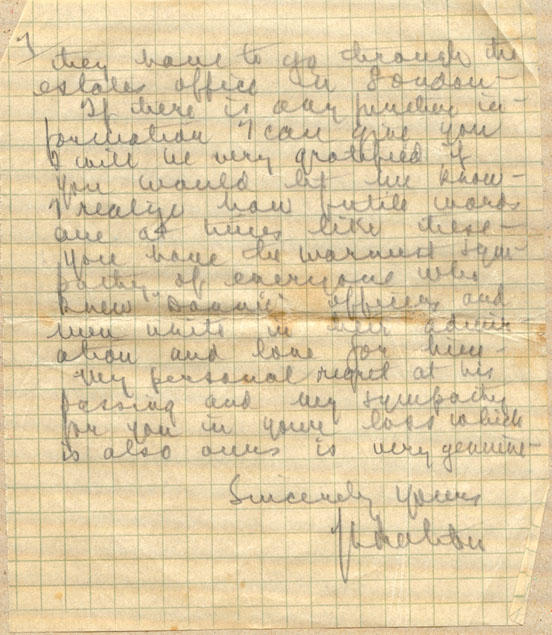 they have to go through the
estates office in London -
If there is any further in-
formation I can give you
I will be very gratified if
you would let me know -
I realize how futile words
are at times like these -
you have the warmest sym-
pathy of everyone who
knew "Dannie" officers and
men unite in their admir-
ation and love for him -
My personal regret at his
passing and my sympathy
for you in your loss which
is also ours is very genuine -
Sincerely yours